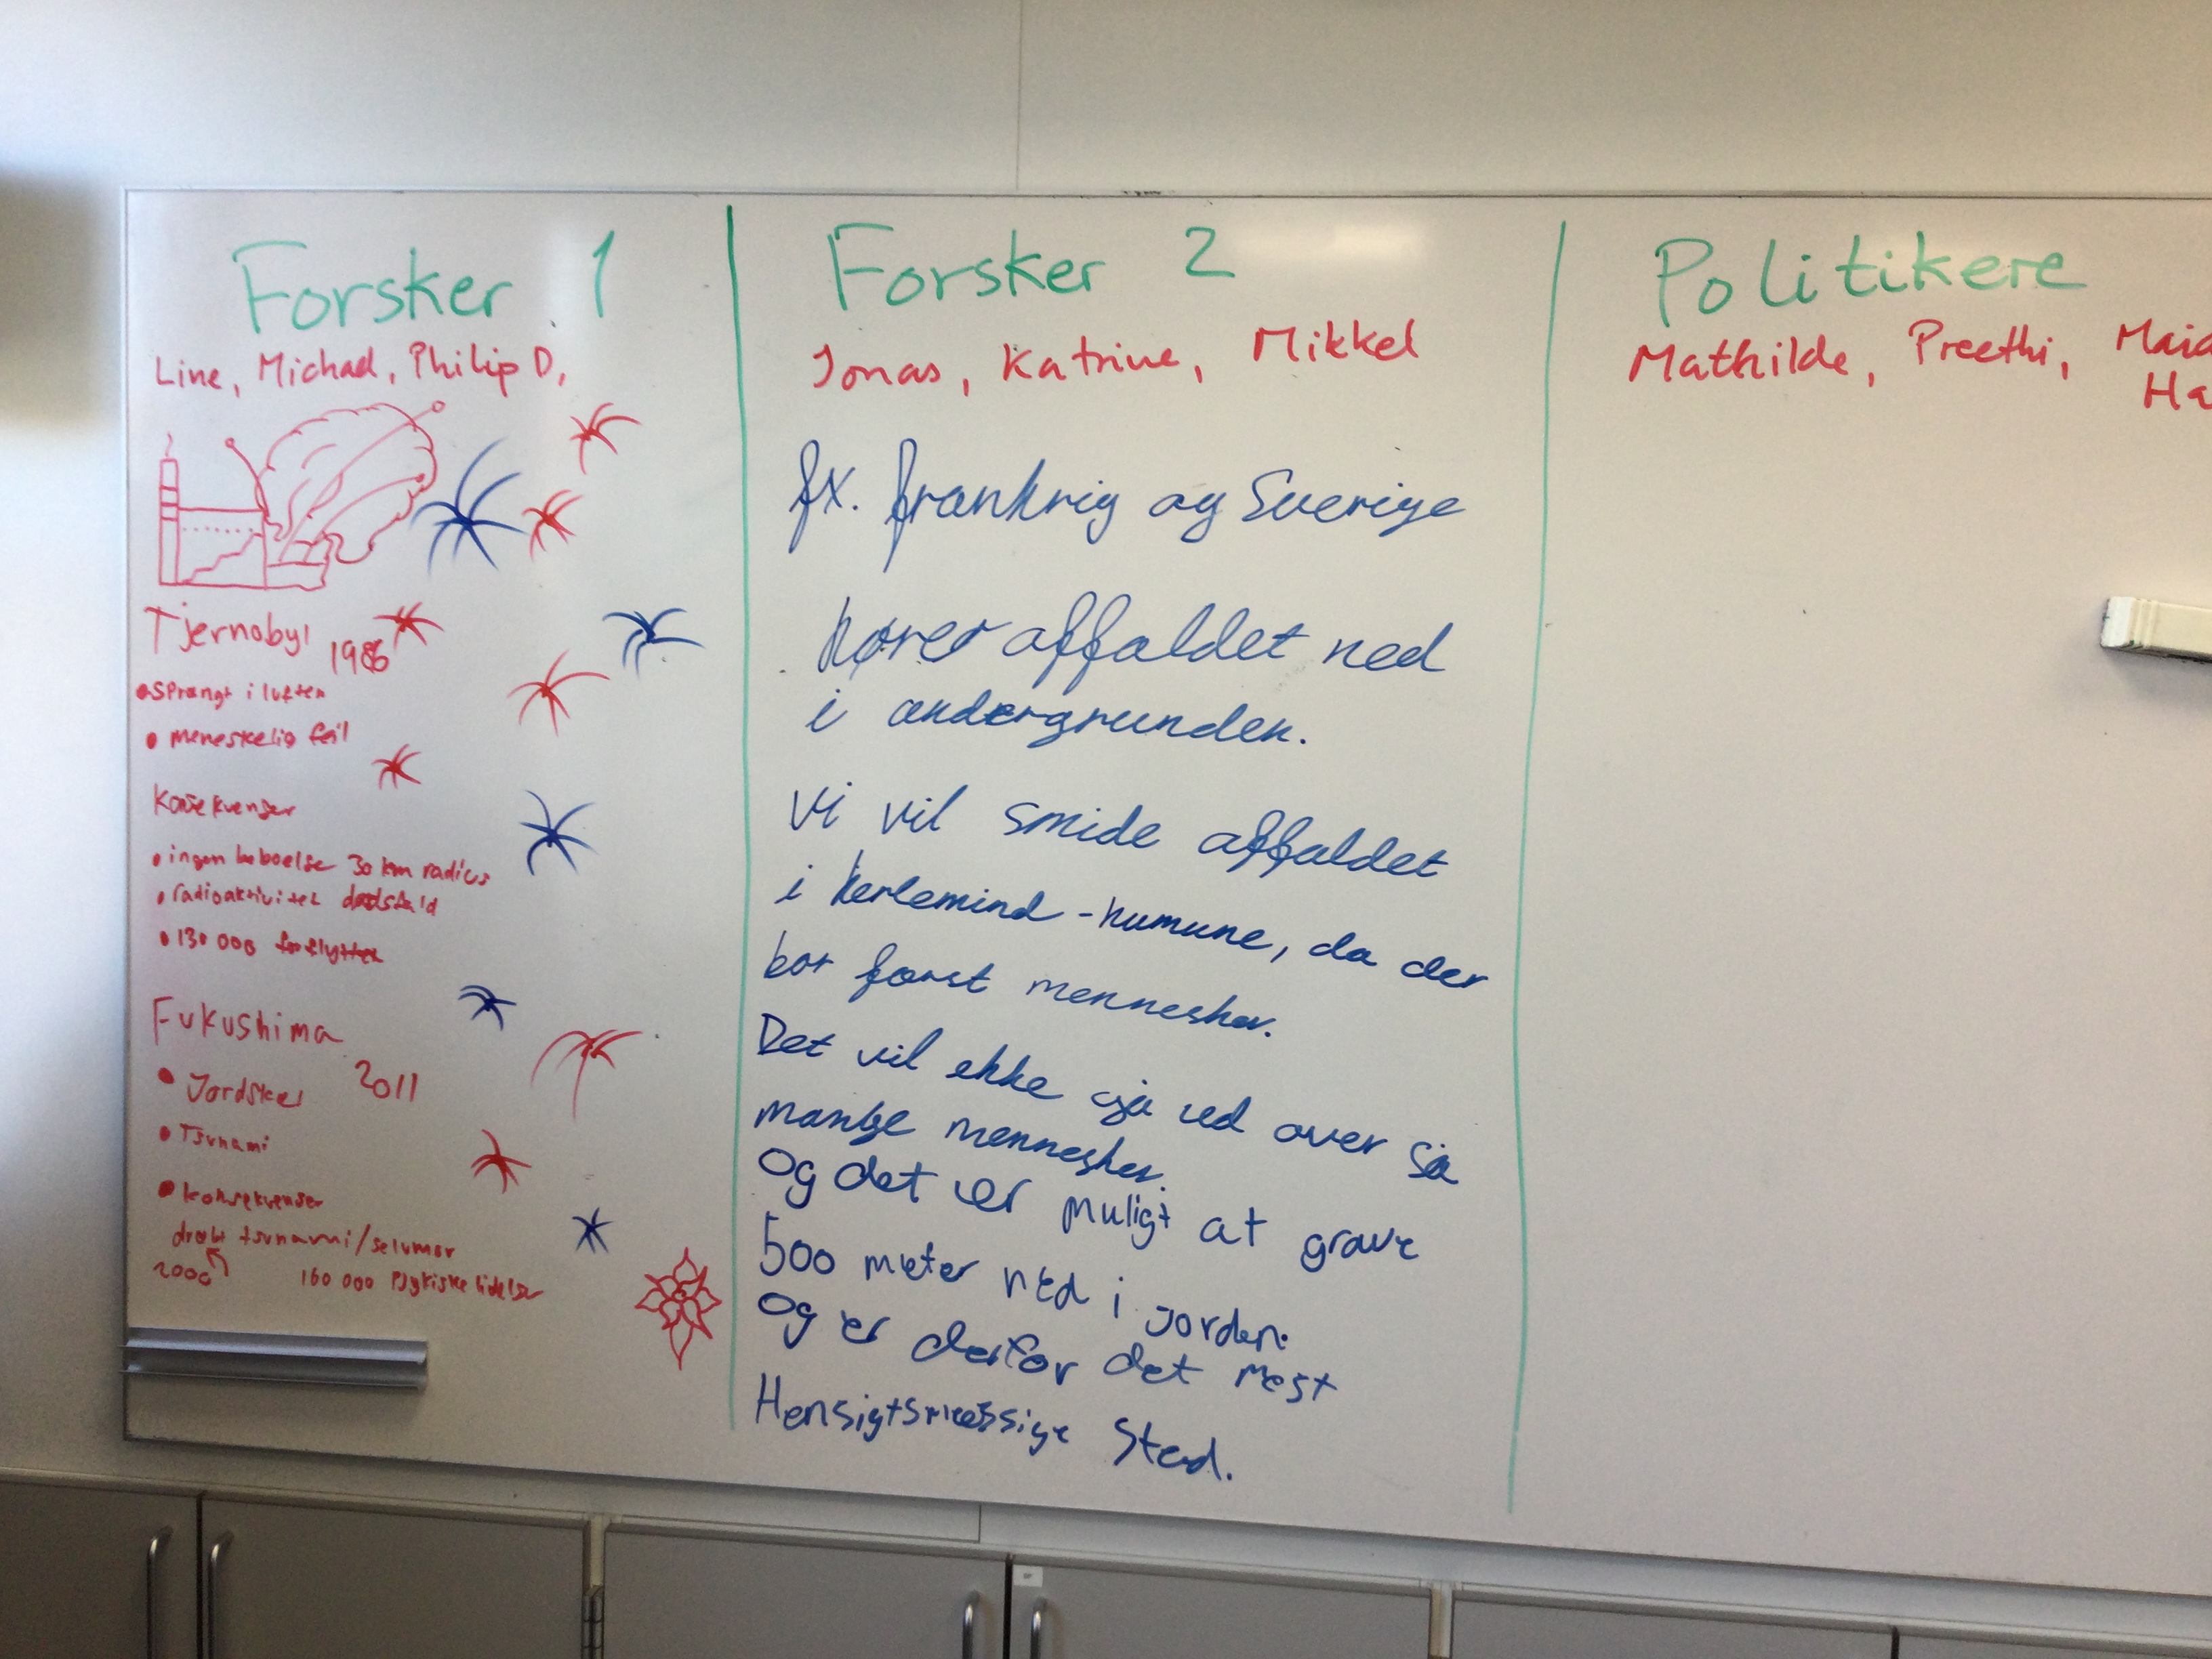 Forsker 1
Line, Michael, Philip D,
Tjernobyl
1986
• Sprængt i luften
• meneskelig fejl
Konsekvenser
• ingen beboelse 30 km radius
• radioaktivitet dødsfald
• 130 000 forflyttet
Fukushima
2011
• Jordskæl
• Tsunami
• konsekvenser
dræbt tsunami/selvmor
2000
160 000 Psykiske lidelser
Forsker 2
Jonas, Katrine, Mikkel
fx. frankrig og Sverige
kører affaldet ned
i undergrunden.
Vi vil smide affaldet
i kerlemind-kumune, da der
bor færst mennesker.
Det vil ikke gå ud over så
mange mennesker.
Og det er muligt at grave
500 meter ned i jorden.
Og er derfor det mest
Hensigtsmæssige Sted.
Politikere
Mathilde, Preethi,